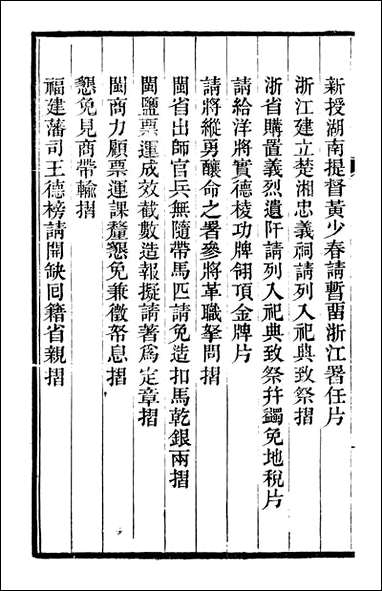 新授湖南提督黃少春請暫畱浙江署任片
浙江建立楚湘忠義祠請列入祀典致祭摺
浙省購置義烈遺阡請列入祀典致祭幷蠲免地稅片
請給洋將實德棱功牌翎頂金牌片
請將縱勇釀命之署參將革職拏問摺
閩省出師官兵無隨帶馬匹請免造扣馬乾銀兩摺
閩鹽票運成效截數造報擬請著爲定章摺
閩商力顧票運課釐懇免兼徵帑息摺
懇免見商帶輸摺
福建藩司王德榜請開缺囘籍省親摺